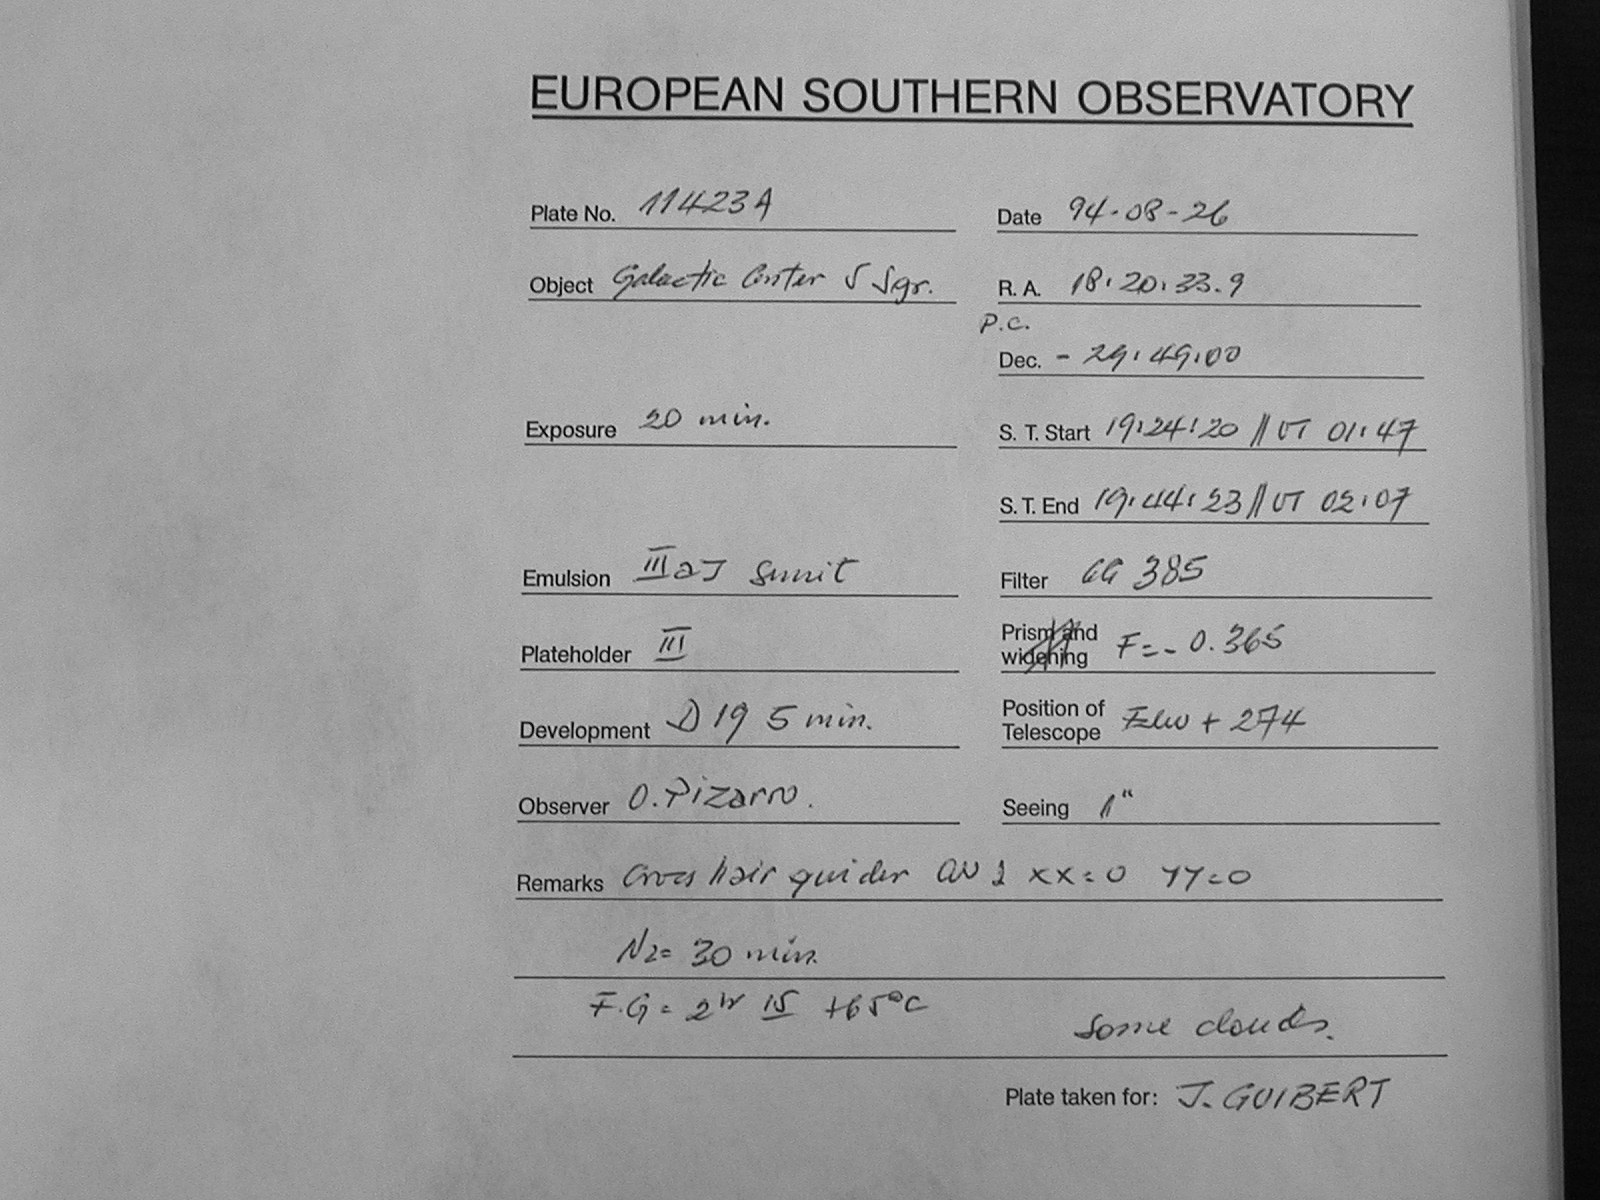 EUROPEAN SOUTHERN OBSERVATORY
Plate No. 11423A
Date 94-08-26
Object Galactic Center S Sgr.
R. A. 18:20:33.9
P.C.
Dec. - 29:49:00
Exposure 20 min.
S. T. Start 19:24:20 // UT 01:47
S. T. End 19:44:23 // UT 02:07
Emulsion IIIaJ
Filter GG 385
Plateholder III
Prism and widening F=-0.365
Development D19 5 min.
Position of Telescope + 274
Observer O. Pizarro.
Seeing 1"
Remarks Cross hair guider XX=0 YY=0
N2= 30 min.
F.G = 2hr 15 +65°C
Some clouds.
Plate taken for: J. GUIBERT